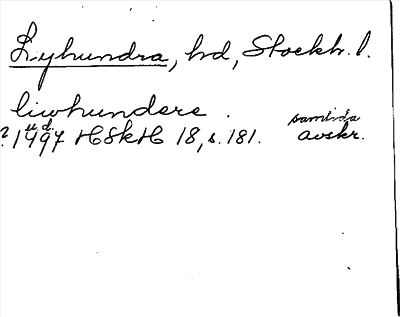 Lyhundra, hd, Stockh. l.
liwhundere.
u. d.
? 1497 HSkH 18, s. 181. samtida avskr.